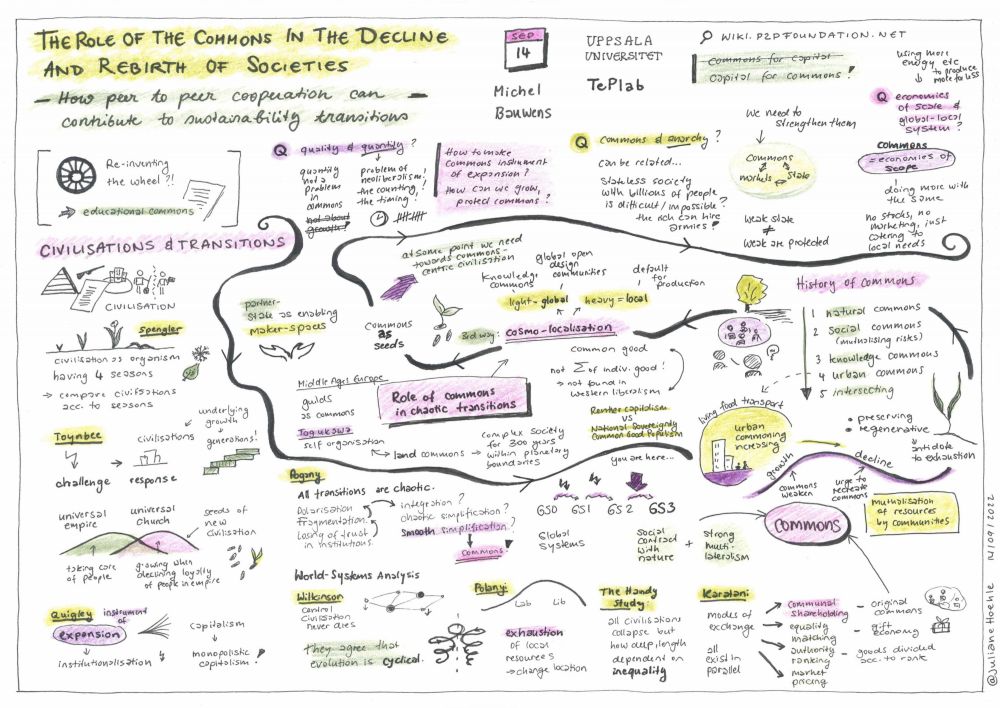 THE ROLE OF THE COMMONS IN THE DECLINE
AND REBIRTH OF SOCIETIES
- How peer to peer cooperation can -
contribute to sustainability transitions
SEP
14
Michel
Bauwens
UPPSALA
UNIVERSITET
TePlab
WIKI.P2PFOUNDATION.NET
commons for capital
capital for commons!
using more
energy etc
to produce
more for less
Q economies
of scale &
global-local
system?
commons
= economies of
scope
doing more with
the same
no stocks, no
marketing, just
catering to
local needs
Re-inventing
the wheel?!
educational commons
Q quality & quantity?
quantity
not a
problem
in
commons
not about
growth!
problem of
neoliberalism!
the counting!
the timing!
How to make
commons instrument
of expansion?
How can we grow,
protect commons?
Q commons & anarchy?
can be related...
Stateless society
with billions of people
is difficult/impossible?
the rich can hire
armies!
we need to
strengthen them
commons
markets
State
weak state
≠
weak are protected
CIVILISATIONS & TRANSITIONS
CIVILISATION
Spengler
civilisation as organism
having 4 seasons
→ compare civilisations
acc. to seasons
Toynbee
challenge
response
civilisations
underlying
growth
generations!
universal
empire
universal
church
seeds of
new
civilisation
taking care
of people
growing when
declining loyalty
of people in empire
Quigley
instrument
of
expansion
institutionalisation
capitalism
monopolistic
capitalism!
partner-
state as enabling
maker-spaces
at some point we need
towards commons-
centric civilisation
commons
as
seeds
knowledge
commons
global open
design
communities
default
for
production
light = global
heavy = local
3rd way: cosmo-localisation
common good
not Σ of indiv. good!
→ not found in
western liberalism
Rentier capitalism
vs
National Sovereignty
Common Good Populism
Role of commons
in chaotic transitions
Middle Ages Europe
guilds
as commons
Tokugawa
self organisation
land commons
complex society
for 300 years
within planetary
boundaries
History of commons
1 natural commons
2 social commons
(mutualising risks)
3 knowledge commons
4 urban commons
5 intersecting
living food transport
urban
commoning
increasing
preserving
regenerative
antidote
to exhaustion
growth
decline
commons
weaken
urge to
recreate
commons
COMMONS
Mutualisation
of resources
by communities
Pogany
All transitions are chaotic.
Polarisation
fragmentation
losing of trust
in institutions.
integration?
chaotic simplification?
smooth simplification?
commons!
you are here...
GS0
GS1
GS2
GS3
Global
Systems
Social
contract
with
nature
+
strong
multi-
lateralism
World-Systems Analysis
Wilkinson
central
civilisation
never dies
they agree that
evolution is cyclical.
Polanyi
Lab
Lib
exhaustion
of local
resources
→ change location
The Handy
Study:
all civilisations
collapse but
how deep/length
dependent on
inequality
Karatani
modes of
exchange
all
exist in
parallel
communal
shareholding
equality
matching
authority
ranking
market
pricing
original
commons
gift
economy
goods divided
acc. to rank
@Juliane Hoehle 14/09/2022